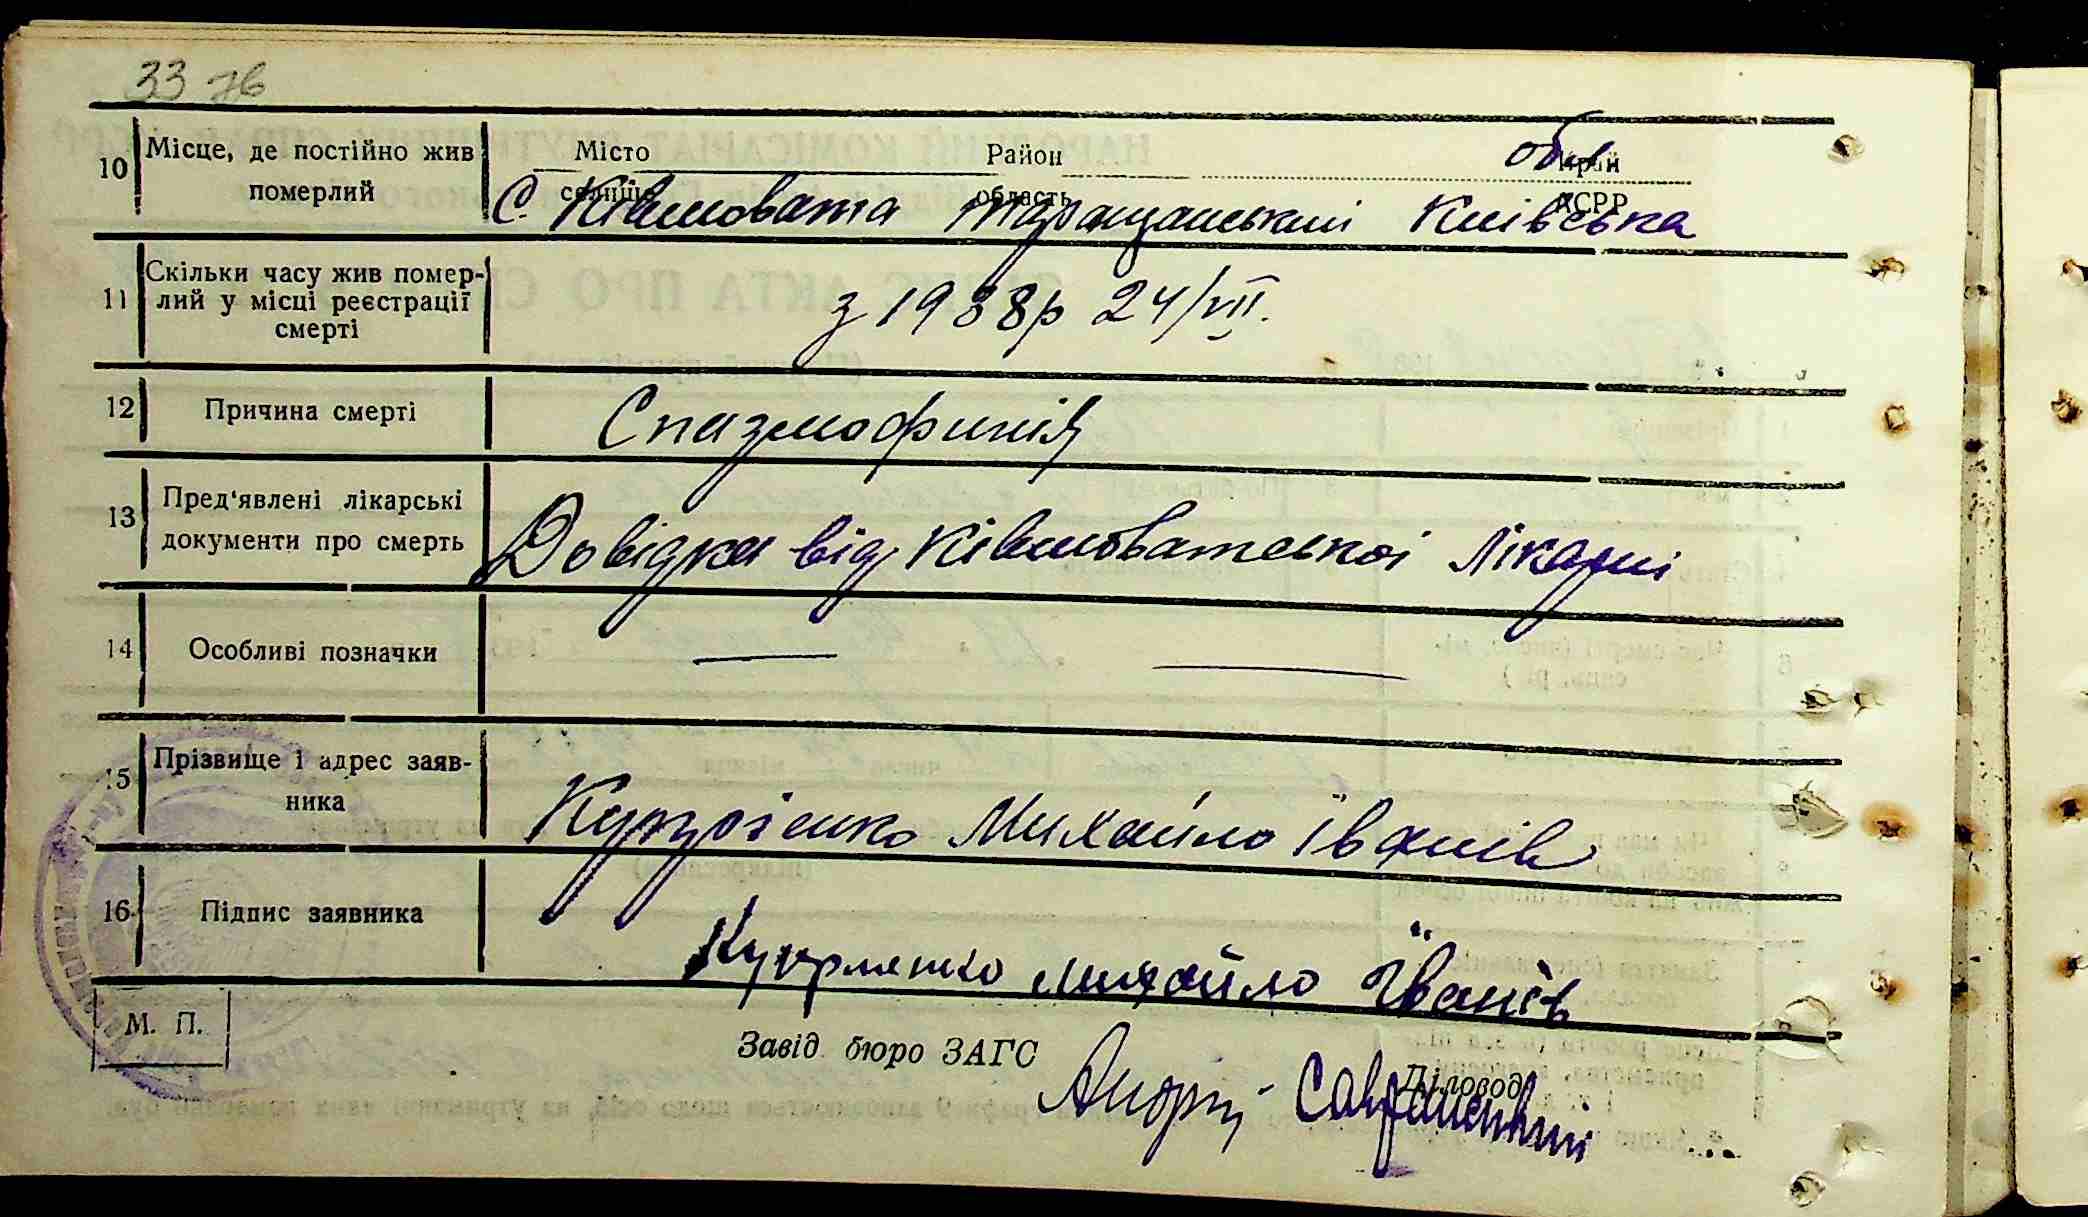 33 зв
10 Місце, де постійно жив померлий
Місто селище Район область Край АСРР
обл.
С. Ківшовата Таращанський Київська
11 Скільки часу жив помер-
лий у місці реєстрації
смерті
з 1938р 24/VII.
12 Причина смерті
Спазмофилія
13 Пред'явлені лікарські
документи про смерть
Довідка від Ківшоватської лікарні
14 Особливі позначки
— —
15 Прізвище і адрес заяв-
ника
Михайло Іванів
16 Підпис заявника
Михайло Іванів
М. П.
Завід. бюро ЗАГС
Діловод